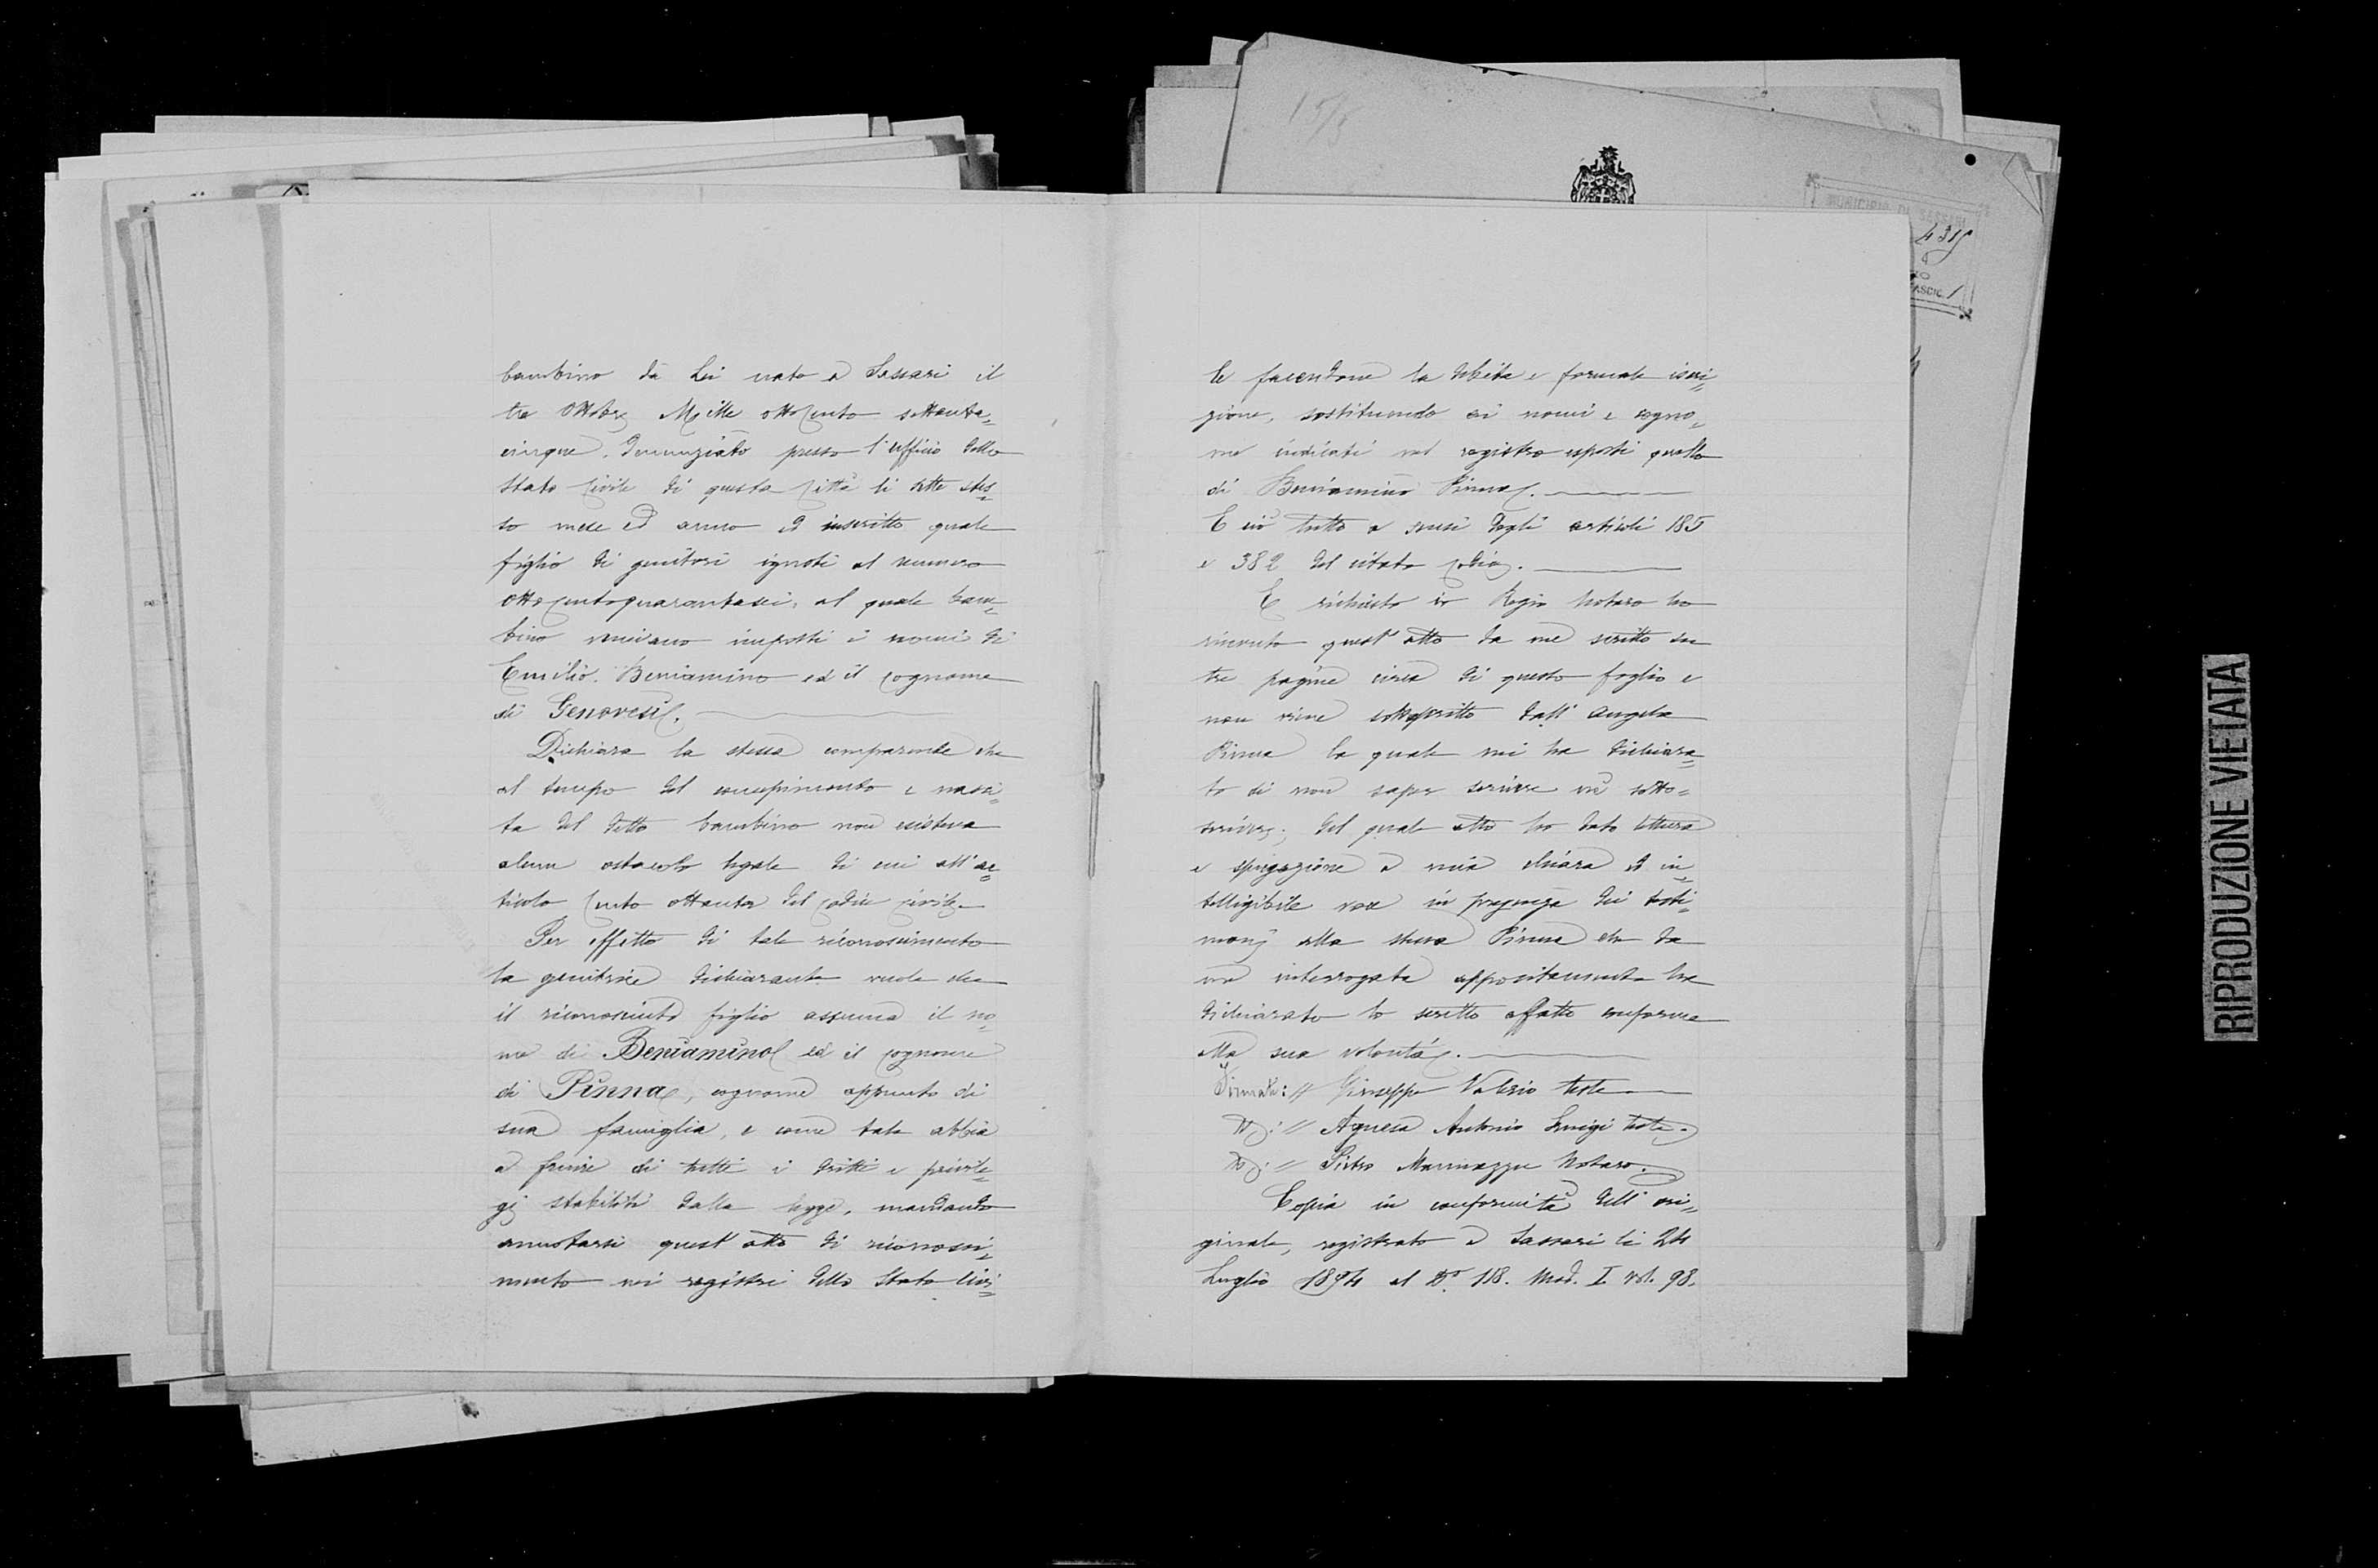 bambino da Lei nato a Sassari il
tre Ottobre Mille ottocento settanta=
cinque. Denunziato presso l'ufficio dello
Stato Civile di questa Città li sette stes=
so mese ed anno ed inscritto quale
figlio di genitori ignoti al numero
ottocentoquarantasei, al quale bam=
bino venivano imposti i nomi di
Emilio. Beniamino ed il cognome
di Genovesi.
Dichiara la stessa comparente che
al tempo del concepimento e nasci=
ta del detto bambino non esisteva
alcun ostacolo legale di cui all'ar=
ticolo cento ottanta del codice civile.
Per effetto di tale riconoscimento
la genitrice dichiarante vuole che
il riconosciuto figlio assuma il no=
me di Beniamino ed il cognome
di Pinna, cognome appunto di
sua famiglia, e come tale abbia
a fruire di tutti i dritti e privile=
gj stabiliti dalla legge, mandando
annotarsi quest'atto di riconosci=
mento nei registri dello Stato Civi=
le facendone la debita e formale iscri=
zione, sostituendo ai nomi e cogno=
me indicati nel registro esposti quello
di Beniamino Pinna.
E ciò tutto a sensi degli articoli 185
e 382 del citato codice.
E richiesto io Regio Notaro ho
ricevuto quest'atto da me scritto su
tre pagine circa di questo foglio e
non viene sottoscritto dall'Angela
Pinna la quale mi ha dichiara=
to di non saper scrivere nè sotto=
scrivere; del quale atto ho dato lettura
e spiegazione a mia chiara ed in=
telligibile voce in presenza dei testi=
monj alla stessa Pinna che da
me interrogata appositamente ha
dichiarato lo scritto affatto conforme
alla sua volontà.
Firmati: // Giuseppe Valerio teste
// Agnesa Antonio Luigi teste.
// Pietro Marmazzu Notaro.
Copia in conformità dell'ori=
ginale, registrato a Sassari li 24
Luglio 1894 al N° 118. Mod. I vol. 98.
15/5
MUNICIPIO DI SASSARI
FASCIC. 1
RIPRODUZIONE VIETATA